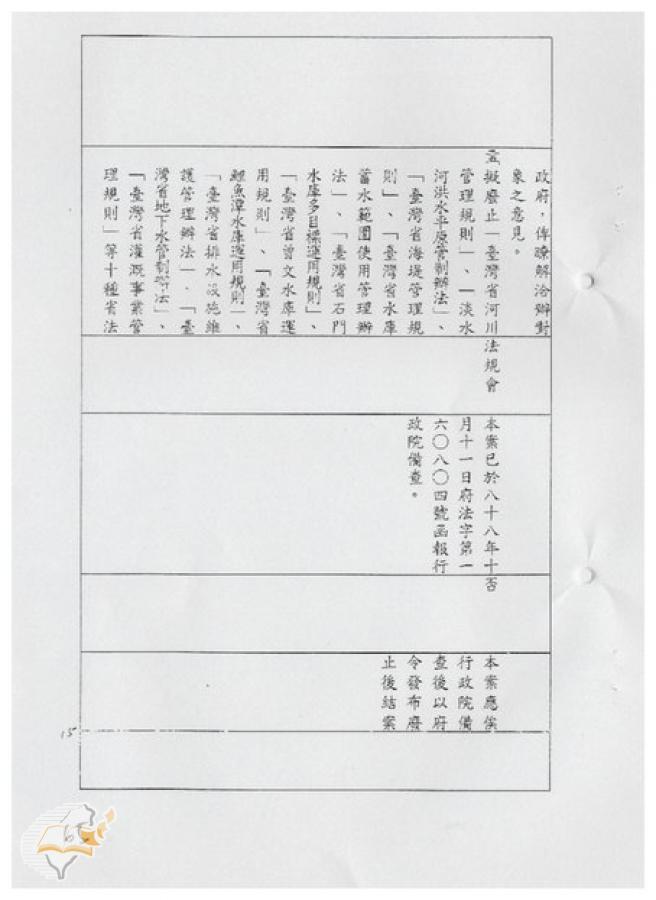 政府，俾瞭解洽辦對
象之意見。
擬廢止「臺灣省河川
管理規則」、「淡水
河洪水平原管制辦法」、
「臺灣省海堤管理規
則」、「臺灣省水庫
蓄水範圍使用管理辦
法」、「臺灣省石門
水庫多目標運用規則」、
「臺灣省曾文水庫運
用規則」、「臺灣省
鯉魚潭水庫運用規則」、
「臺灣省排水設施維
護管理辦法」、「臺
灣省地下水管制辦法」、
「臺灣省灌溉事業管
理規則」等十種省法
法規會
本案已於八十八年十
月十一日府法字第一
六〇八〇四號函報行
政院備查。
否
本案應俟
行政院備
查後以府
令發布廢
止後結案
15